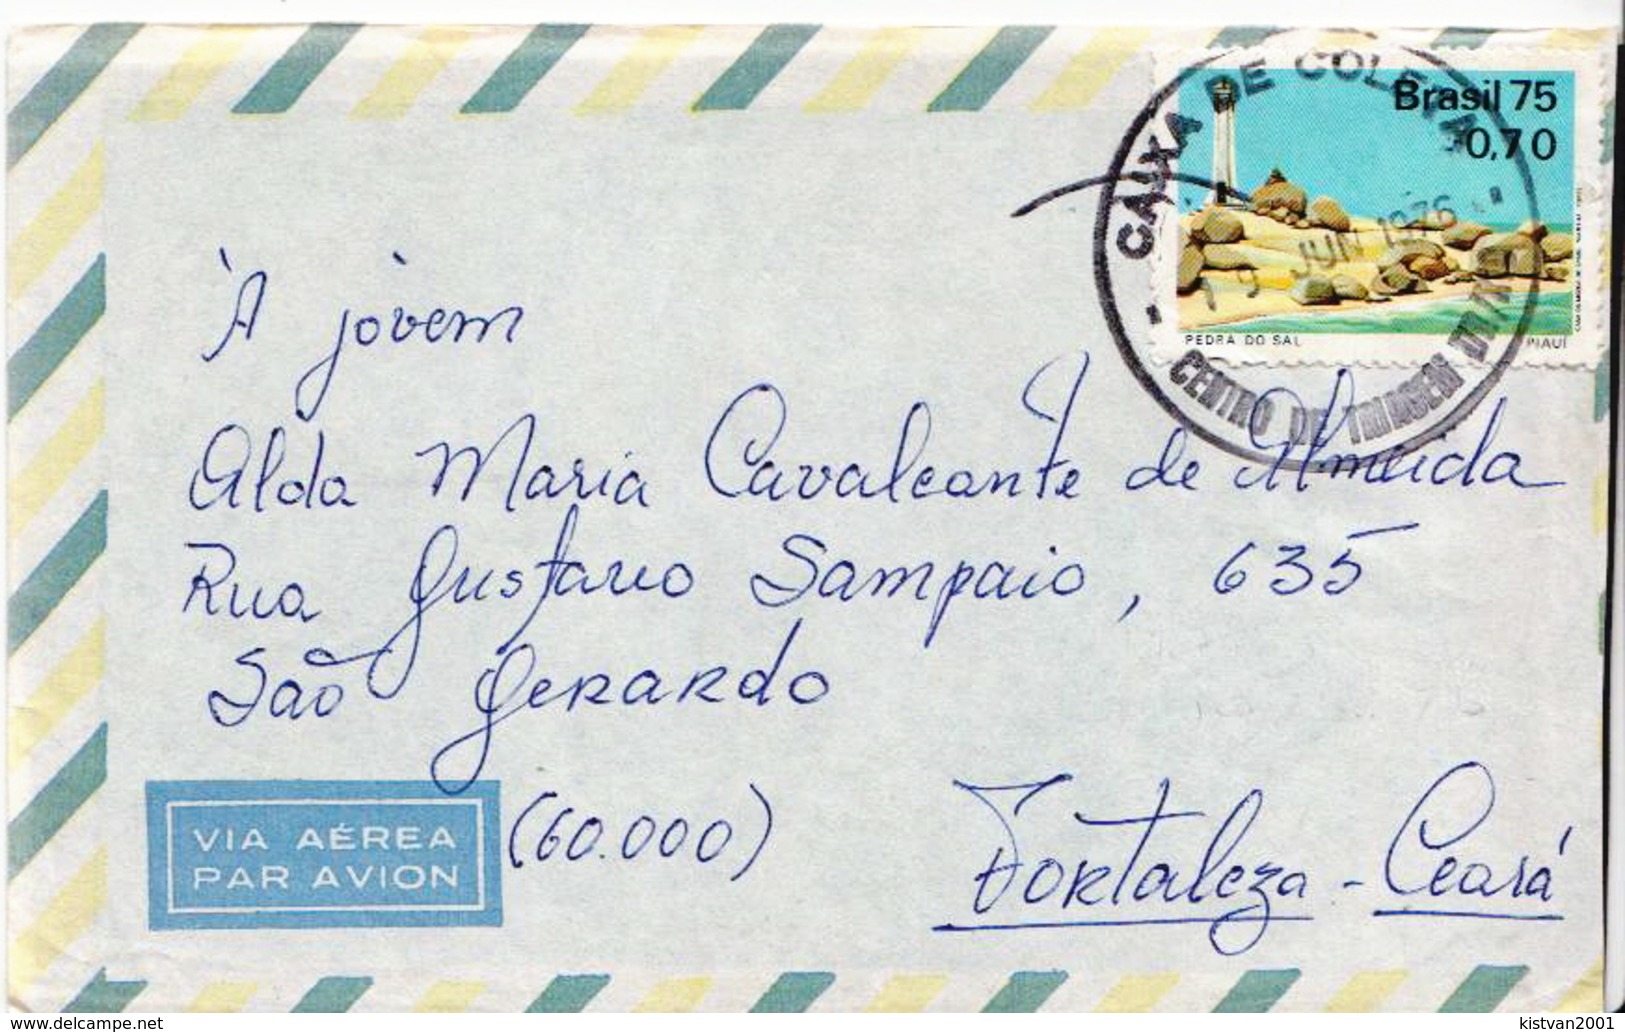 CAIXA DE COLETA
Brasil 75
0,70
JUN 1976
PEDRA DO SAL
PIAUÍ
CENTRO DE TRIAGEM
À jovem
Alda Maria Cavalcante de Almeida
Rua Gustavo Sampaio, 635
São Gerardo
(60.000)
VIA AÉREA
PAR AVION
Fortaleza - Ceará
www.delcampe.net
kistvan2001